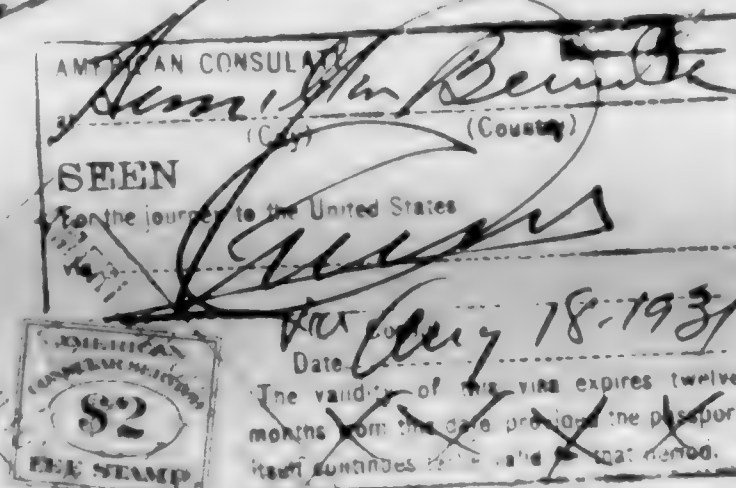 AMERICAN CONSULATE
at Hamilton Bermuda
(City) (Country)
SEEN
For the journey to the United States
via
Date Aug 18-1931
The validity of this visa expires twelve
months from this date provided the passport
itself continues to be valid for that period.
AMERICAN
CONSULAR SERVICE
$2
FEE STAMP